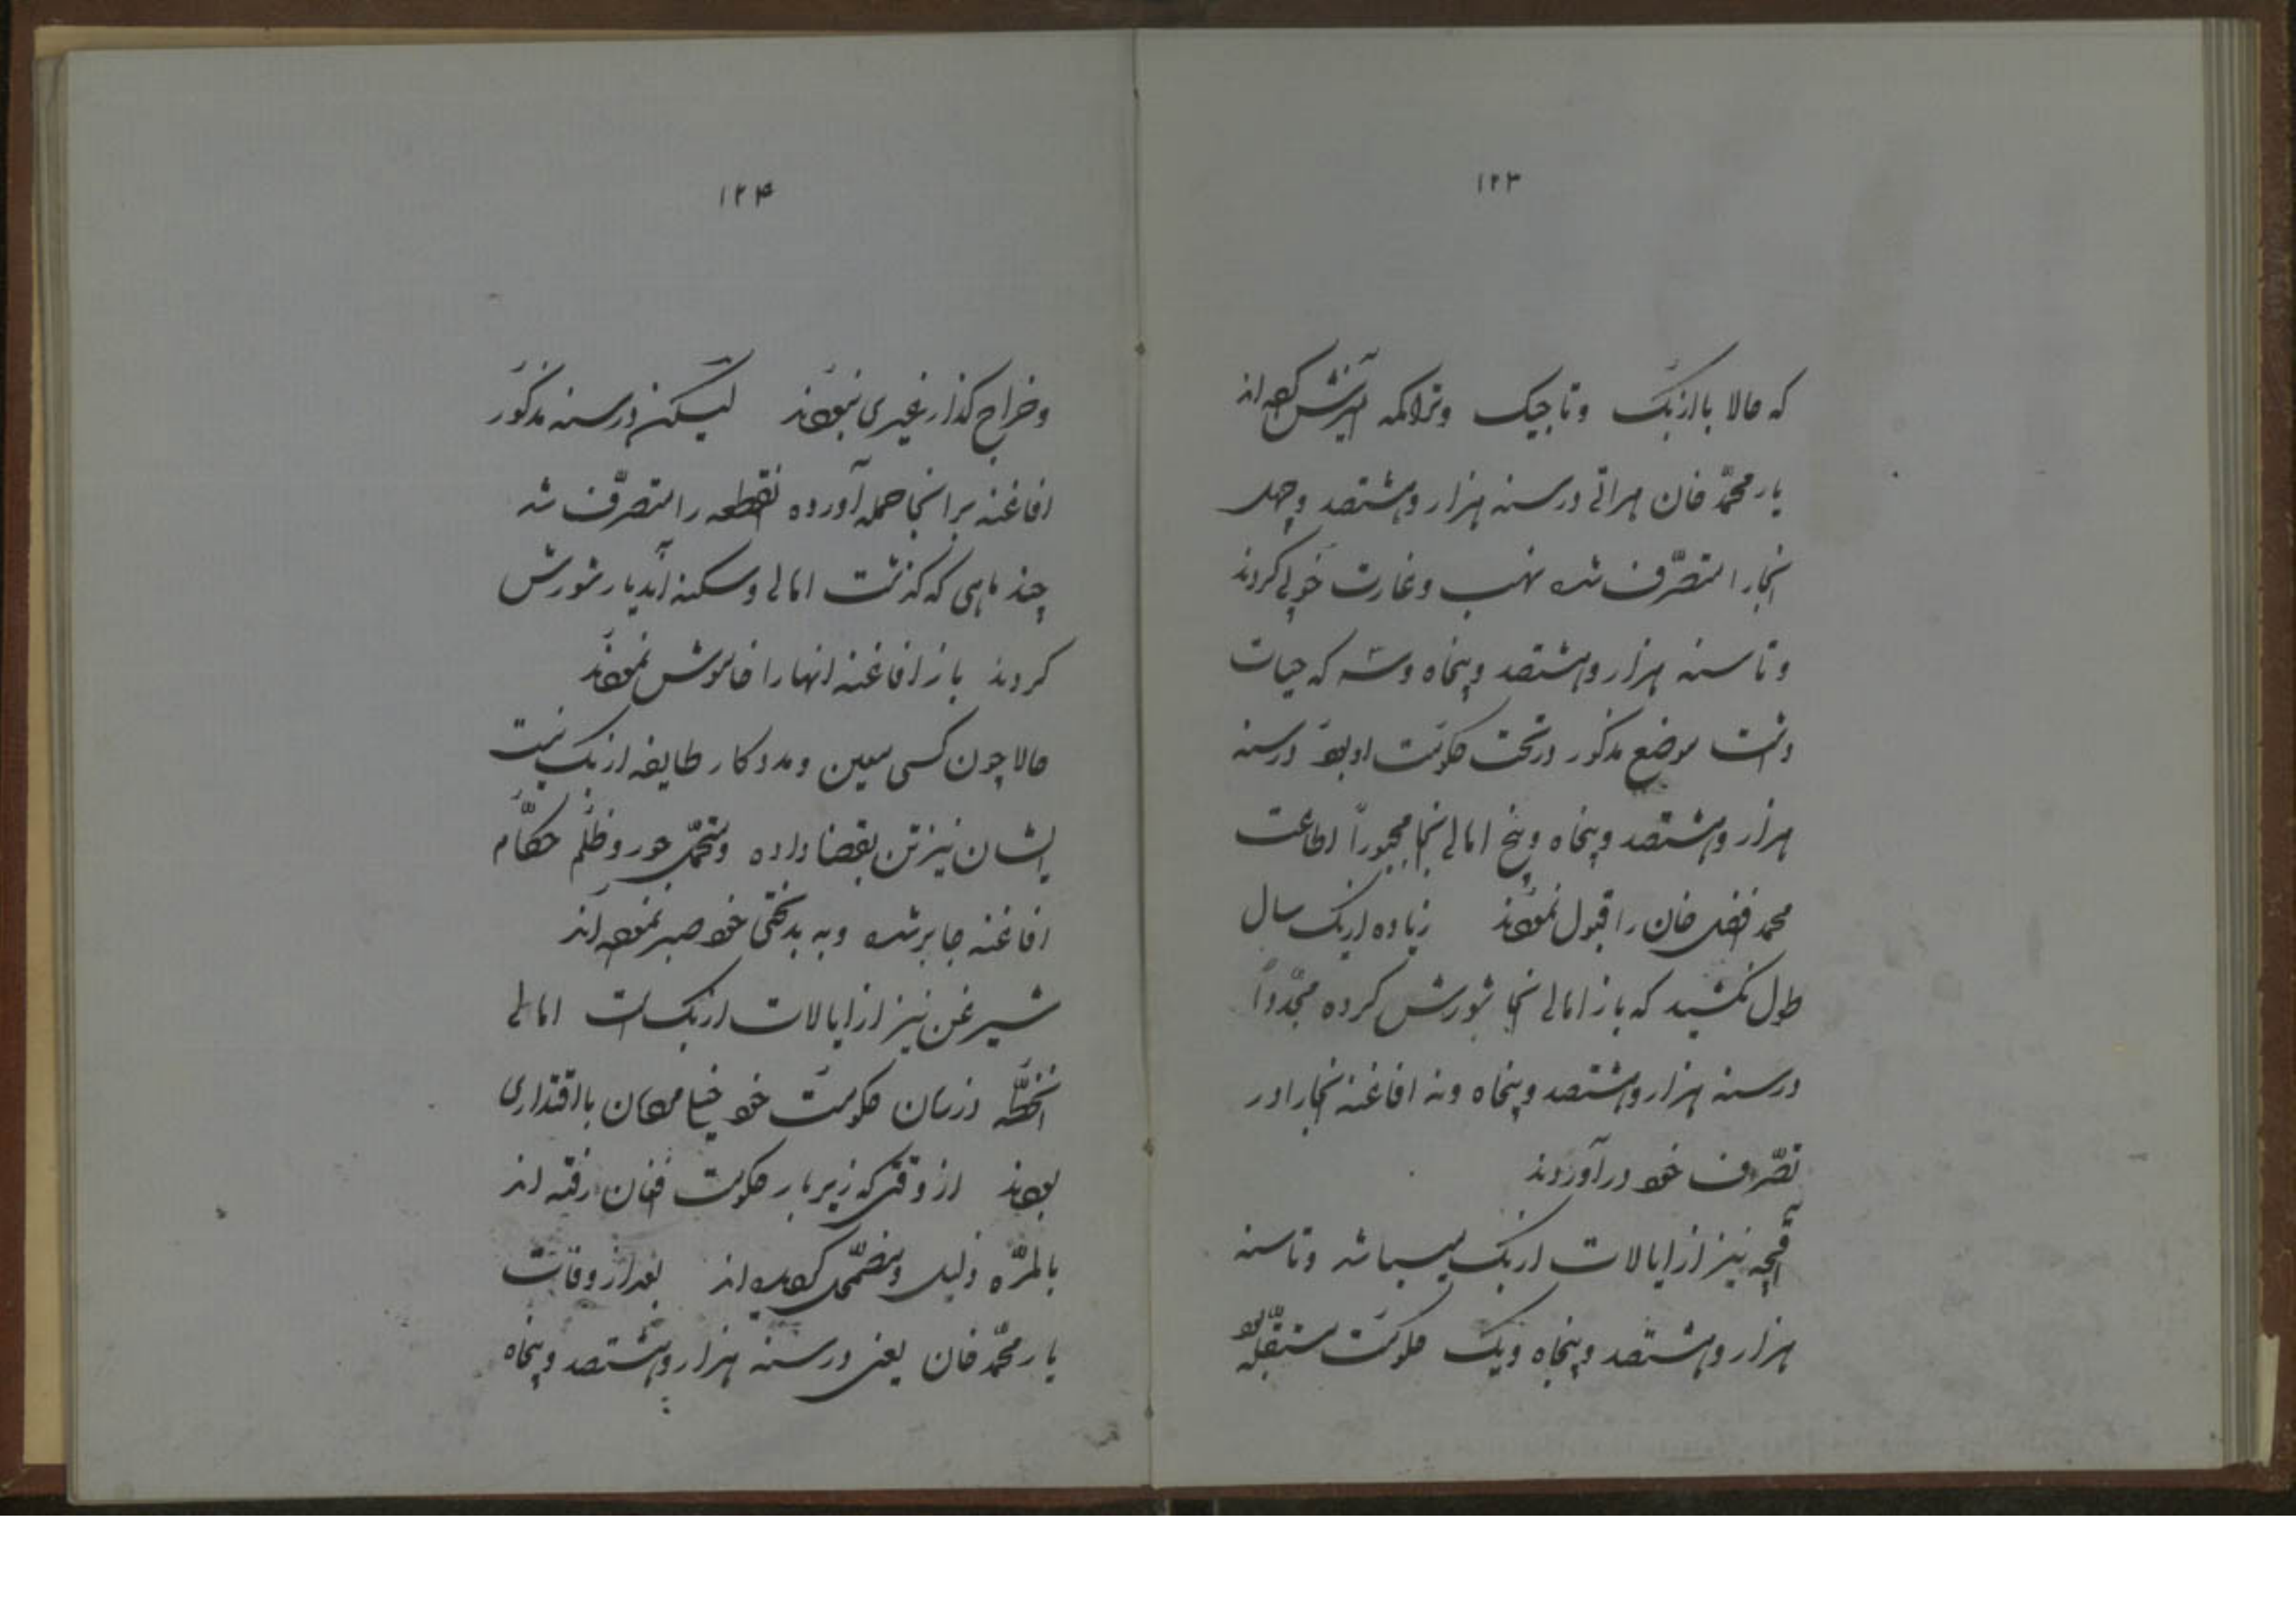 ۱۲۳
که حالا با اوزبک و تاجیک و تراکمه آمیزش کرده‌اند
یار محمّد خان هراتی در سنه هزار و هشتصد و چهل
آنجا را متصرّف شده نهب و غارت خوبی کردند
و تا سنه هزار و هشتصد و پنجاه و سه که حیات
داشت موضع مذکور در تحت حکومت او بود در سنه
هزار و هشتصد و پنجاه و پنج اهالی آنجا مجبوراً اطاعت
محمد افضل خان را قبول نمودند زیاده از یک سال
طول نکشید که باز اهالی آنجا شورش کرده مجدّداً
در سنه هزار و هشتصد و پنجاه و نه افاغنه آنجا را در
تصّرف خود در آوردند
آقچه نیز از ایالات ازبک میباشد و تا سنه
هزار و هشتصد و پنجاه و یک حکومت مستقلّه بود
۱۲۴
و خراج گذار غیری نبودند لیکن در سنه مذکور
افاغنه بر آنجا حمله آورده آنقطعه را متصرّف شد
چند ماهی که گذشت اهالی و سکنه آندیار شورش
کردند باز افاغنه انها را خاموش نمودند
حالا چون کسی معین و مددکار طایفه ازبک نیست
ایشان نیز تن بقضا داده و متحمّل جور و ظلم حکّام
افاغنه جابر شده و به بدبختی خود صبر نموده‌اند
شیرغن نیز از ایالات ازبک است اهالی
آنخطّه در زمان حکومت خود خیلی مردمان با اقتداری
بودند از وقتی که زیر بار حکومت افغان رفته‌اند
بالمرّه ذلیل و مضمّحل گردیده‌اند بعد از وفات
یار محمّد خان یعنی در سنه هزار و هشتصد و پنجاه